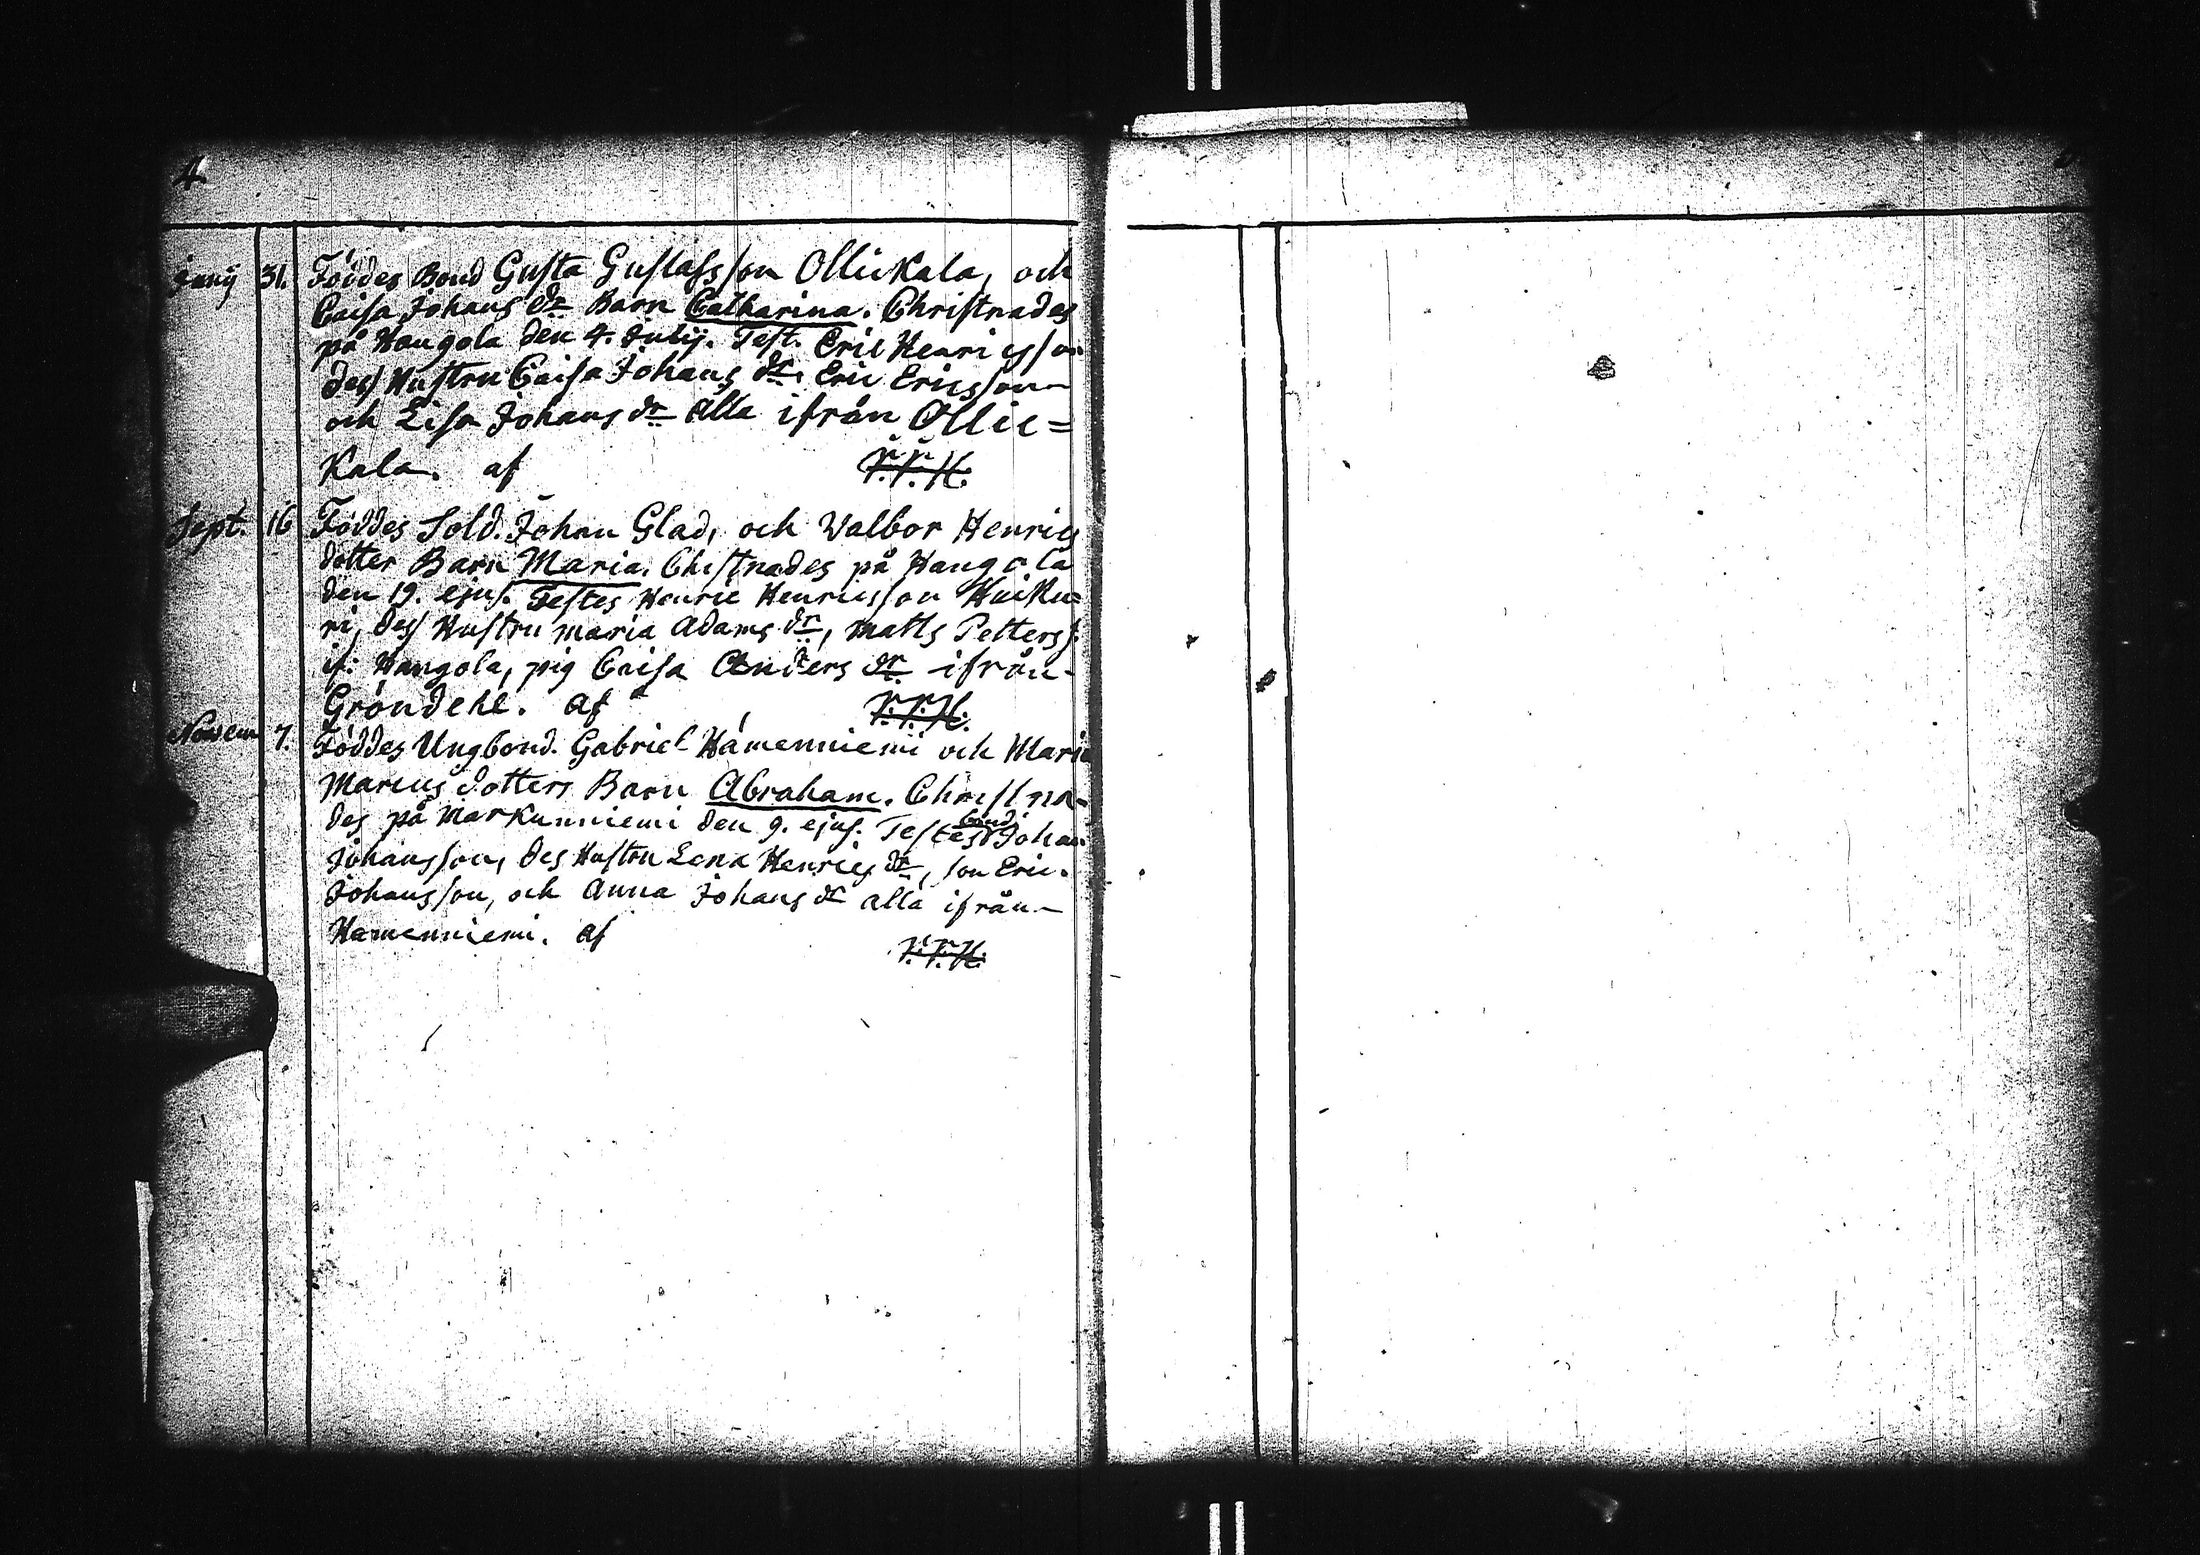 4.
Junij 31. Föddes Bond Gusta Gustafsson Ollickala, och
Caisa Johans dr Barn Catharina. Christnades
på Haugola den 4. Julij. Test. Eric Henricsson
dess Hustru Caisa Johans dr. Eric Ericsson
och Lisa Johans dr alla ifrån Ollic=
kala. af
Sept. 16 Föddes Sold. Johan Glad, och Walbor Henrics
dotter Barn Maria. Chistnades på Haugola
den 19. ejus. Testes Henric Henricsson Huiku=
ri, dess Hustru Maria Adams dr, Matts Petterss:
if: Haugola, pig Caisa Anders dr ifrån
Gröndehl. af
Novem 7. Föddes Ungbond. Gabriel Hämenniemi och Maria
Marcus dotters Barn Abraham. Christna-
des på Markunniemi den 9. ejus. Testes bond Johan
Johansson, des Hustru Lena Henrics dr, son Eric
Johansson, och Anna Johans dr alla ifrån
Hämenniemi. af